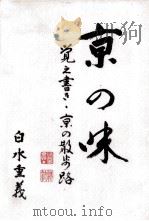 京の味
覚え書き・京の散歩路
白水重義
mtoou.info